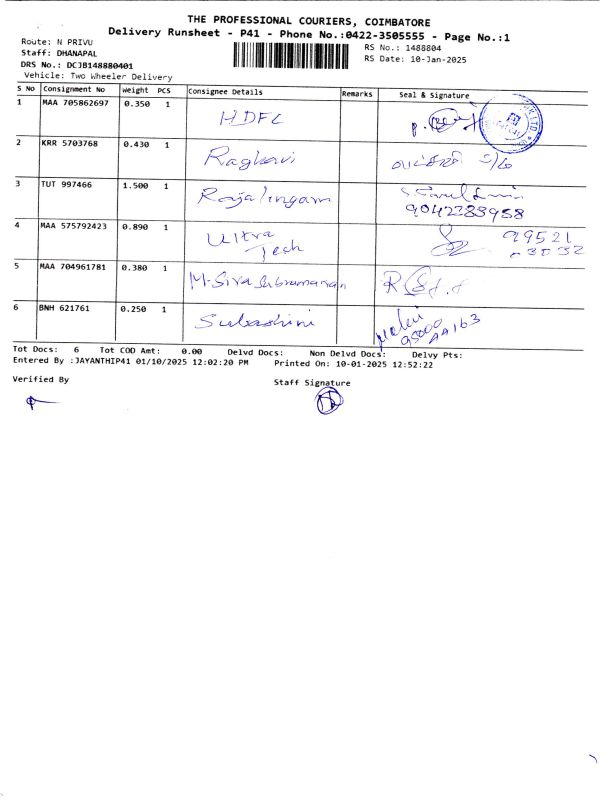 THE PROFESSIONAL COURIERS, COIMBATORE
Delivery Runsheet - P41 - Phone No.:0422-3505555 - Page No.:1
Route: N PRIVU
RS No.: 1488804
Staff: DHANAPAL
RS Date: 10-Jan-2025
DRS No.: DCJB148880401
Vehicle: Two Wheeler Delivery
S No Consignment No Weight PCS Consignee Details Remarks Seal & Signature
1 MAA 705862697 0.350 1 HDFC
2 KRR 5703768 0.430 1 Raghavi
3 TUT 997466 1.500 1 Rajalingam
9042283958
4 MAA 575792423 0.890 1 Ultra Tech 99521
03032
5 MAA 704961781 0.380 1 M. Siva Subramanian
6 BNH 621761 0.250 1 Subashini
Tot Docs: 6 Tot COD Amt: 0.00 Delvd Docs: Non Delvd Docs: Delvy Pts:
Entered By :JAYANTHIP41 01/10/2025 12:02:20 PM Printed On: 10-01-2025 12:52:22
Verified By
Staff Signature